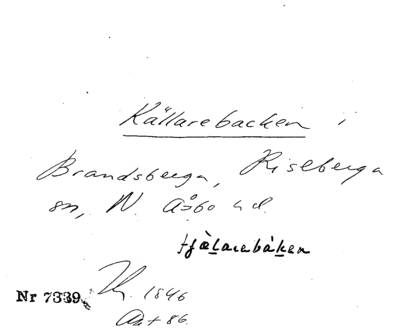 Källarebacken i
Brandsberga, Riseberga
sn, N. Åsbo hd.
tjæ̀larebàken
Nr 7339. 1846